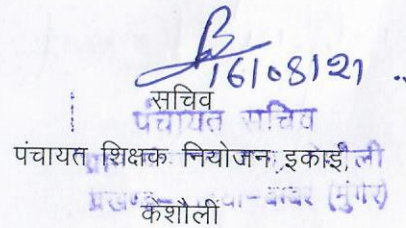 16/08/21
सचिव
पंचायत सचिव
पंचायत शिक्षक नियोजन इकाई,
प्रखण्ड (मुंगेर)
केशौली